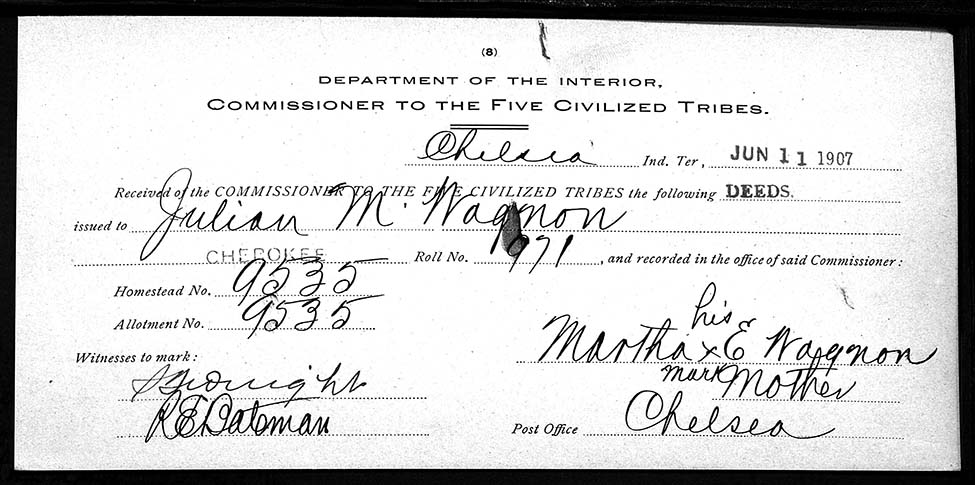 (8)
DEPARTMENT OF THE INTERIOR,
COMMISSIONER TO THE FIVE CIVILIZED TRIBES.
Chelsea Ind. Ter., JUN 11 1907
Received of the COMMISSIONER TO THE FIVE CIVILIZED TRIBES the following DEEDS.
issued to Julian M. Wagnon
CHEROKEE Roll No. 1971, and recorded in the office of said Commissioner:
Homestead No. 9535
Allotment No. 9535
his
Martha x E Wagnon
mark Mother
Witnesses to mark:
R E Bateman
Post Office Chelsea